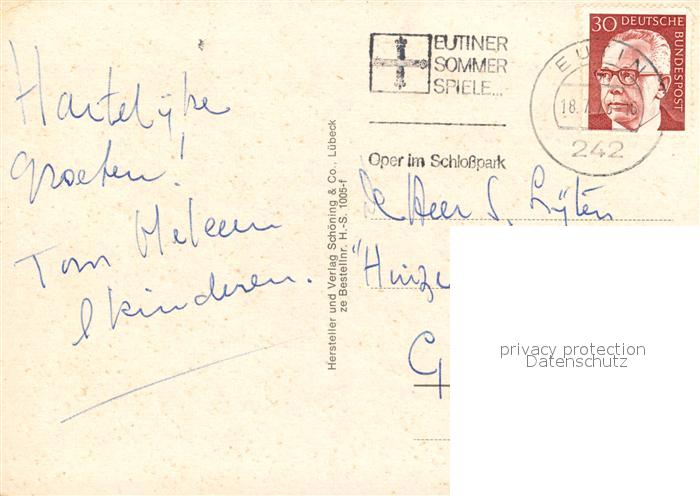 Hartelijke
groeten!
Tom Heleen
& kinderen.
Hersteller und Verlag Schöning & Co., Lübeck
ze Bestellnr. H.-S. 1005-f
EUTINER
SOMMER
SPIELE...
Oper im Schloßpark
30 DEUTSCHE
BUNDESPOST
EUTIN
18.7.
242
De Heer S. Lijten
"Huize
G
privacy protection
Datenschutz